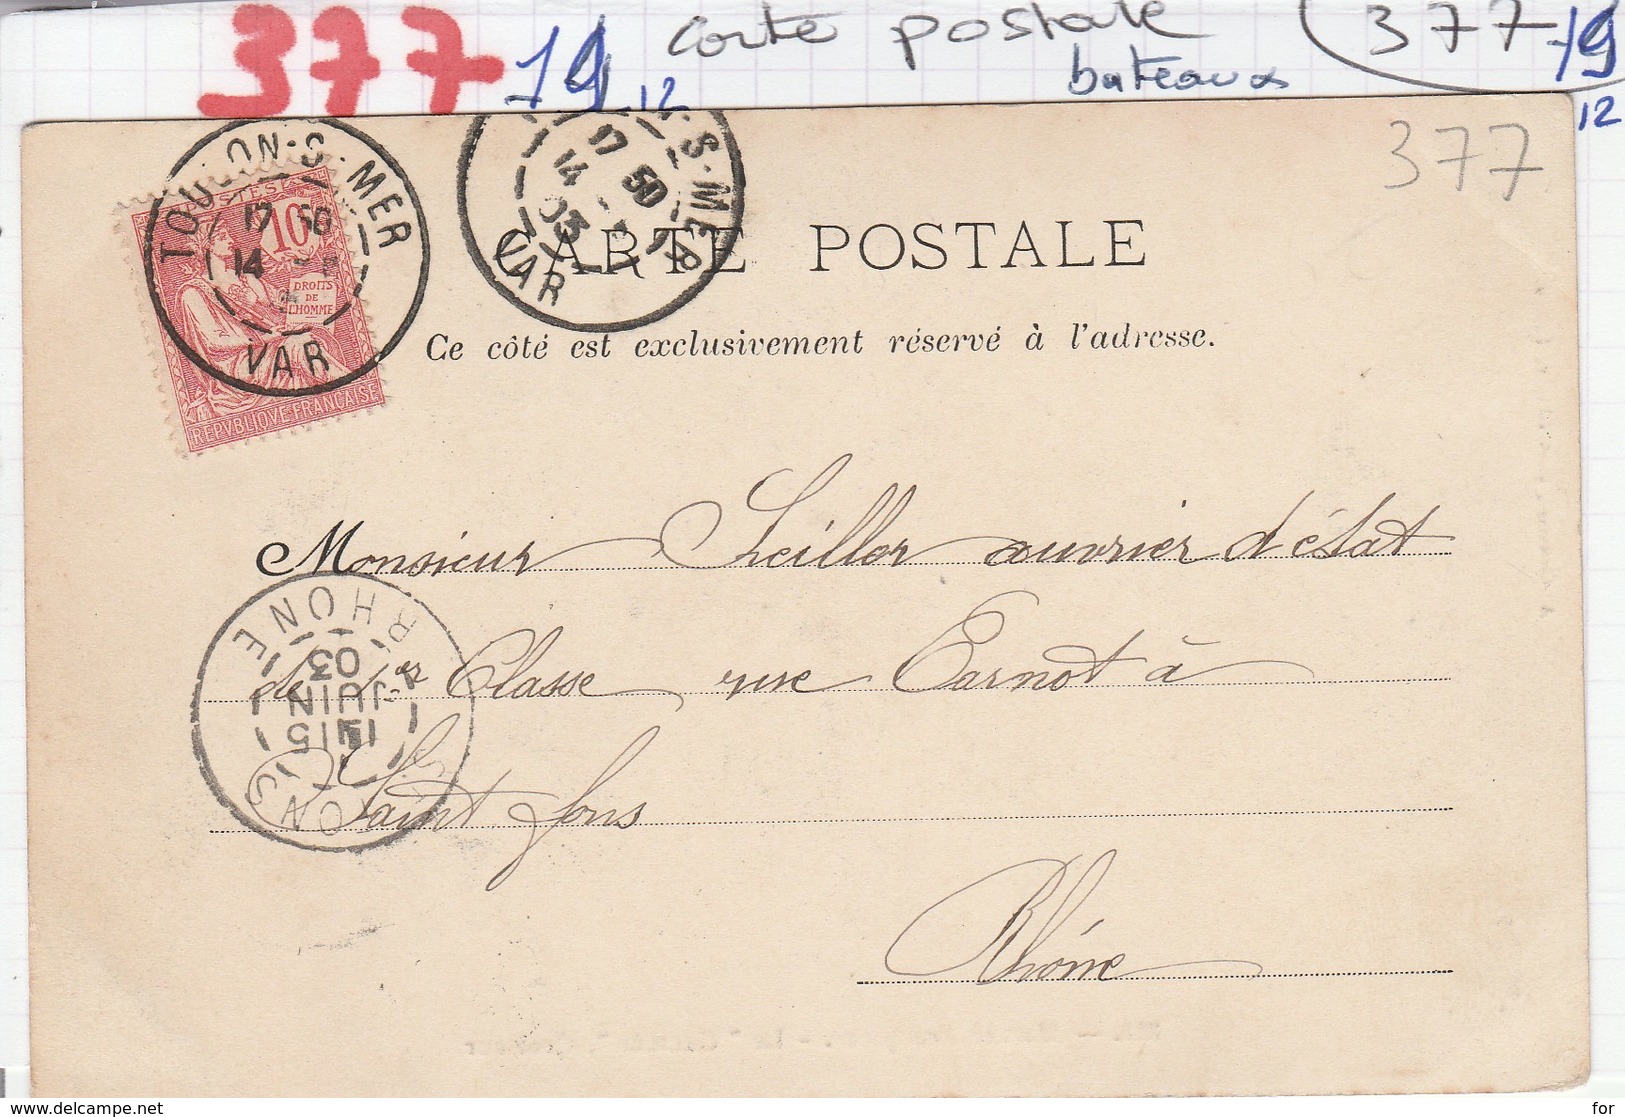 377 19 12 Carte postale 377 19
bateaux 12
377
TOULON-S-MER
17 50
14
VAR
POSTES
10
DROITS
DE
L'HOMME
REPVBLIQVE FRANÇAISE
N-S-MER
17 50
14
03
VAR
CARTE POSTALE
Ce côté est exclusivement réservé à l'adresse.
Monsieur Seillor ouvrier d'état
de 1re Classe rue Carnot à
Saint Fons
Rhône
RHONE
15
JUIN
03
FONS
for